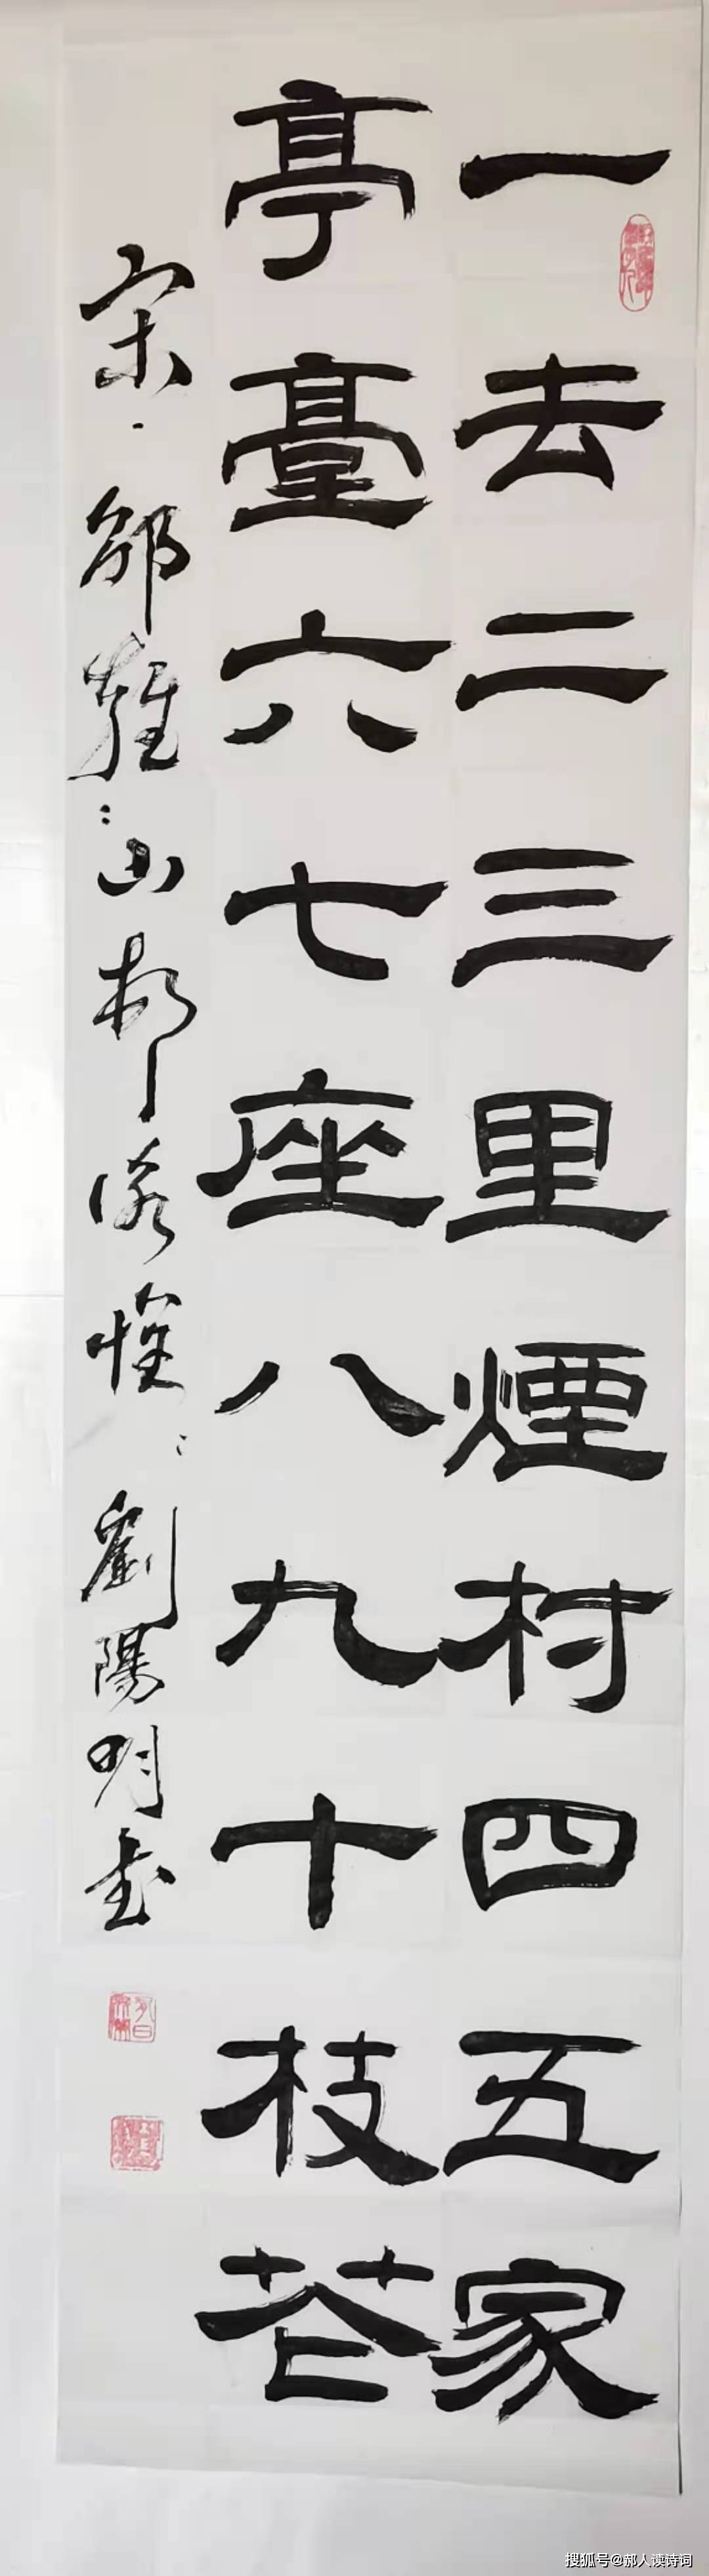 一去二三里煙村四五家
亭臺六七座八九十枝花
宋·邵雍：山村咏怀：劉陽明書
搜狐号@郝人读诗词